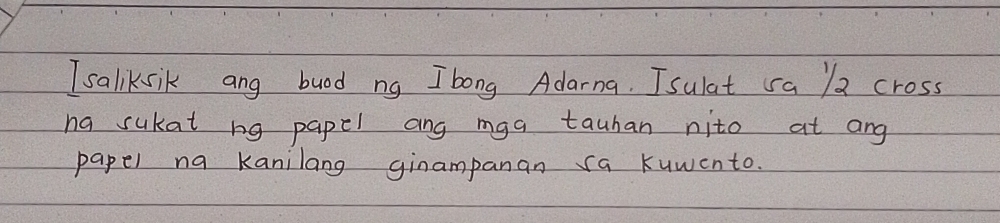 Isaliksik ang buod ng Ibong Adarna. Isulat sa 1/2 cross
na sukat ng papel ang mga tauhan nito at ang
papel na kanilang ginampanan sa kuwento.